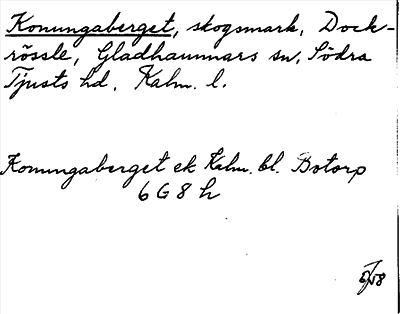 Konungaberget, skogsmark, Dock-
rössle, Gladhammars sn, Södra
Tjusts hd, Kalm. l.
Konungaberget ek Kalm. bl. Botorp
6 G 8 h